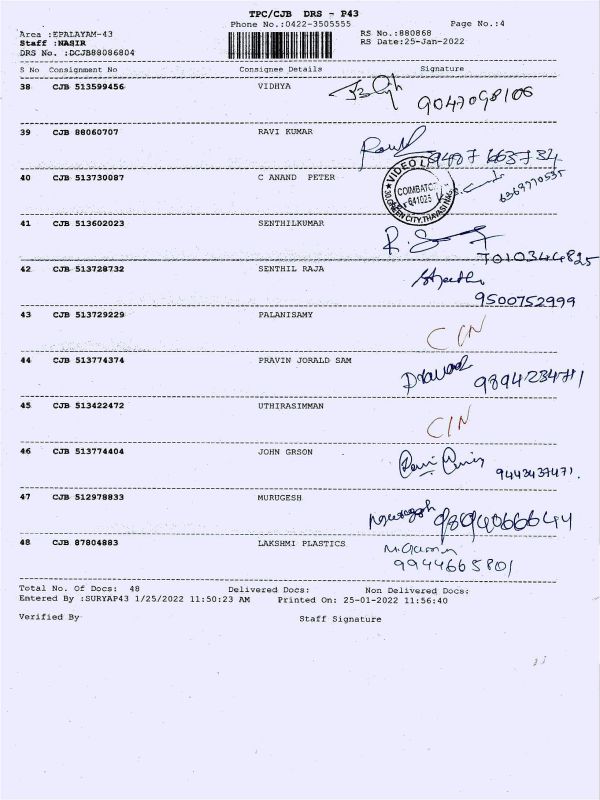 TPC/CJB DRS - P43
Phone No.:0422-3505555
Page No.:4
Area :EPALAYAM-43
RS No.:880868
Staff :NASIR
RS Date:25-Jan-2022
DRS No. :DCJB88086804
S No Consignment No Consignee Details Signature
38 CJB 513599456 VIDHYA
9047098106
39 CJB 88060707 RAVI KUMAR
9487 663734
40 CJB 513730087 C ANAND PETER
VIDEO
COIMBATO
641025
6369770535
41 CJB 513602023 SENTHILKUMAR
7010344825
42 CJB 513728732 SENTHIL RAJA
9500752999
43 CJB 513729229 PALANISAMY
CIN
44 CJB 513774374 PRAVIN JORALD SAM
45 CJB 513422472 UTHIRASIMMAN
CIN
46 CJB 513774404 JOHN GRSON
9443437471.
47 CJB 512978833 MURUGESH
48 CJB 87804883 LAKSHMI PLASTICS
9944665801
Total No. Of Docs: 48 Delivered Docs: Non Delivered Docs:
Entered By :SURYAP43 1/25/2022 11:50:23 AM Printed On: 25-01-2022 11:56:40
Verified By Staff Signature